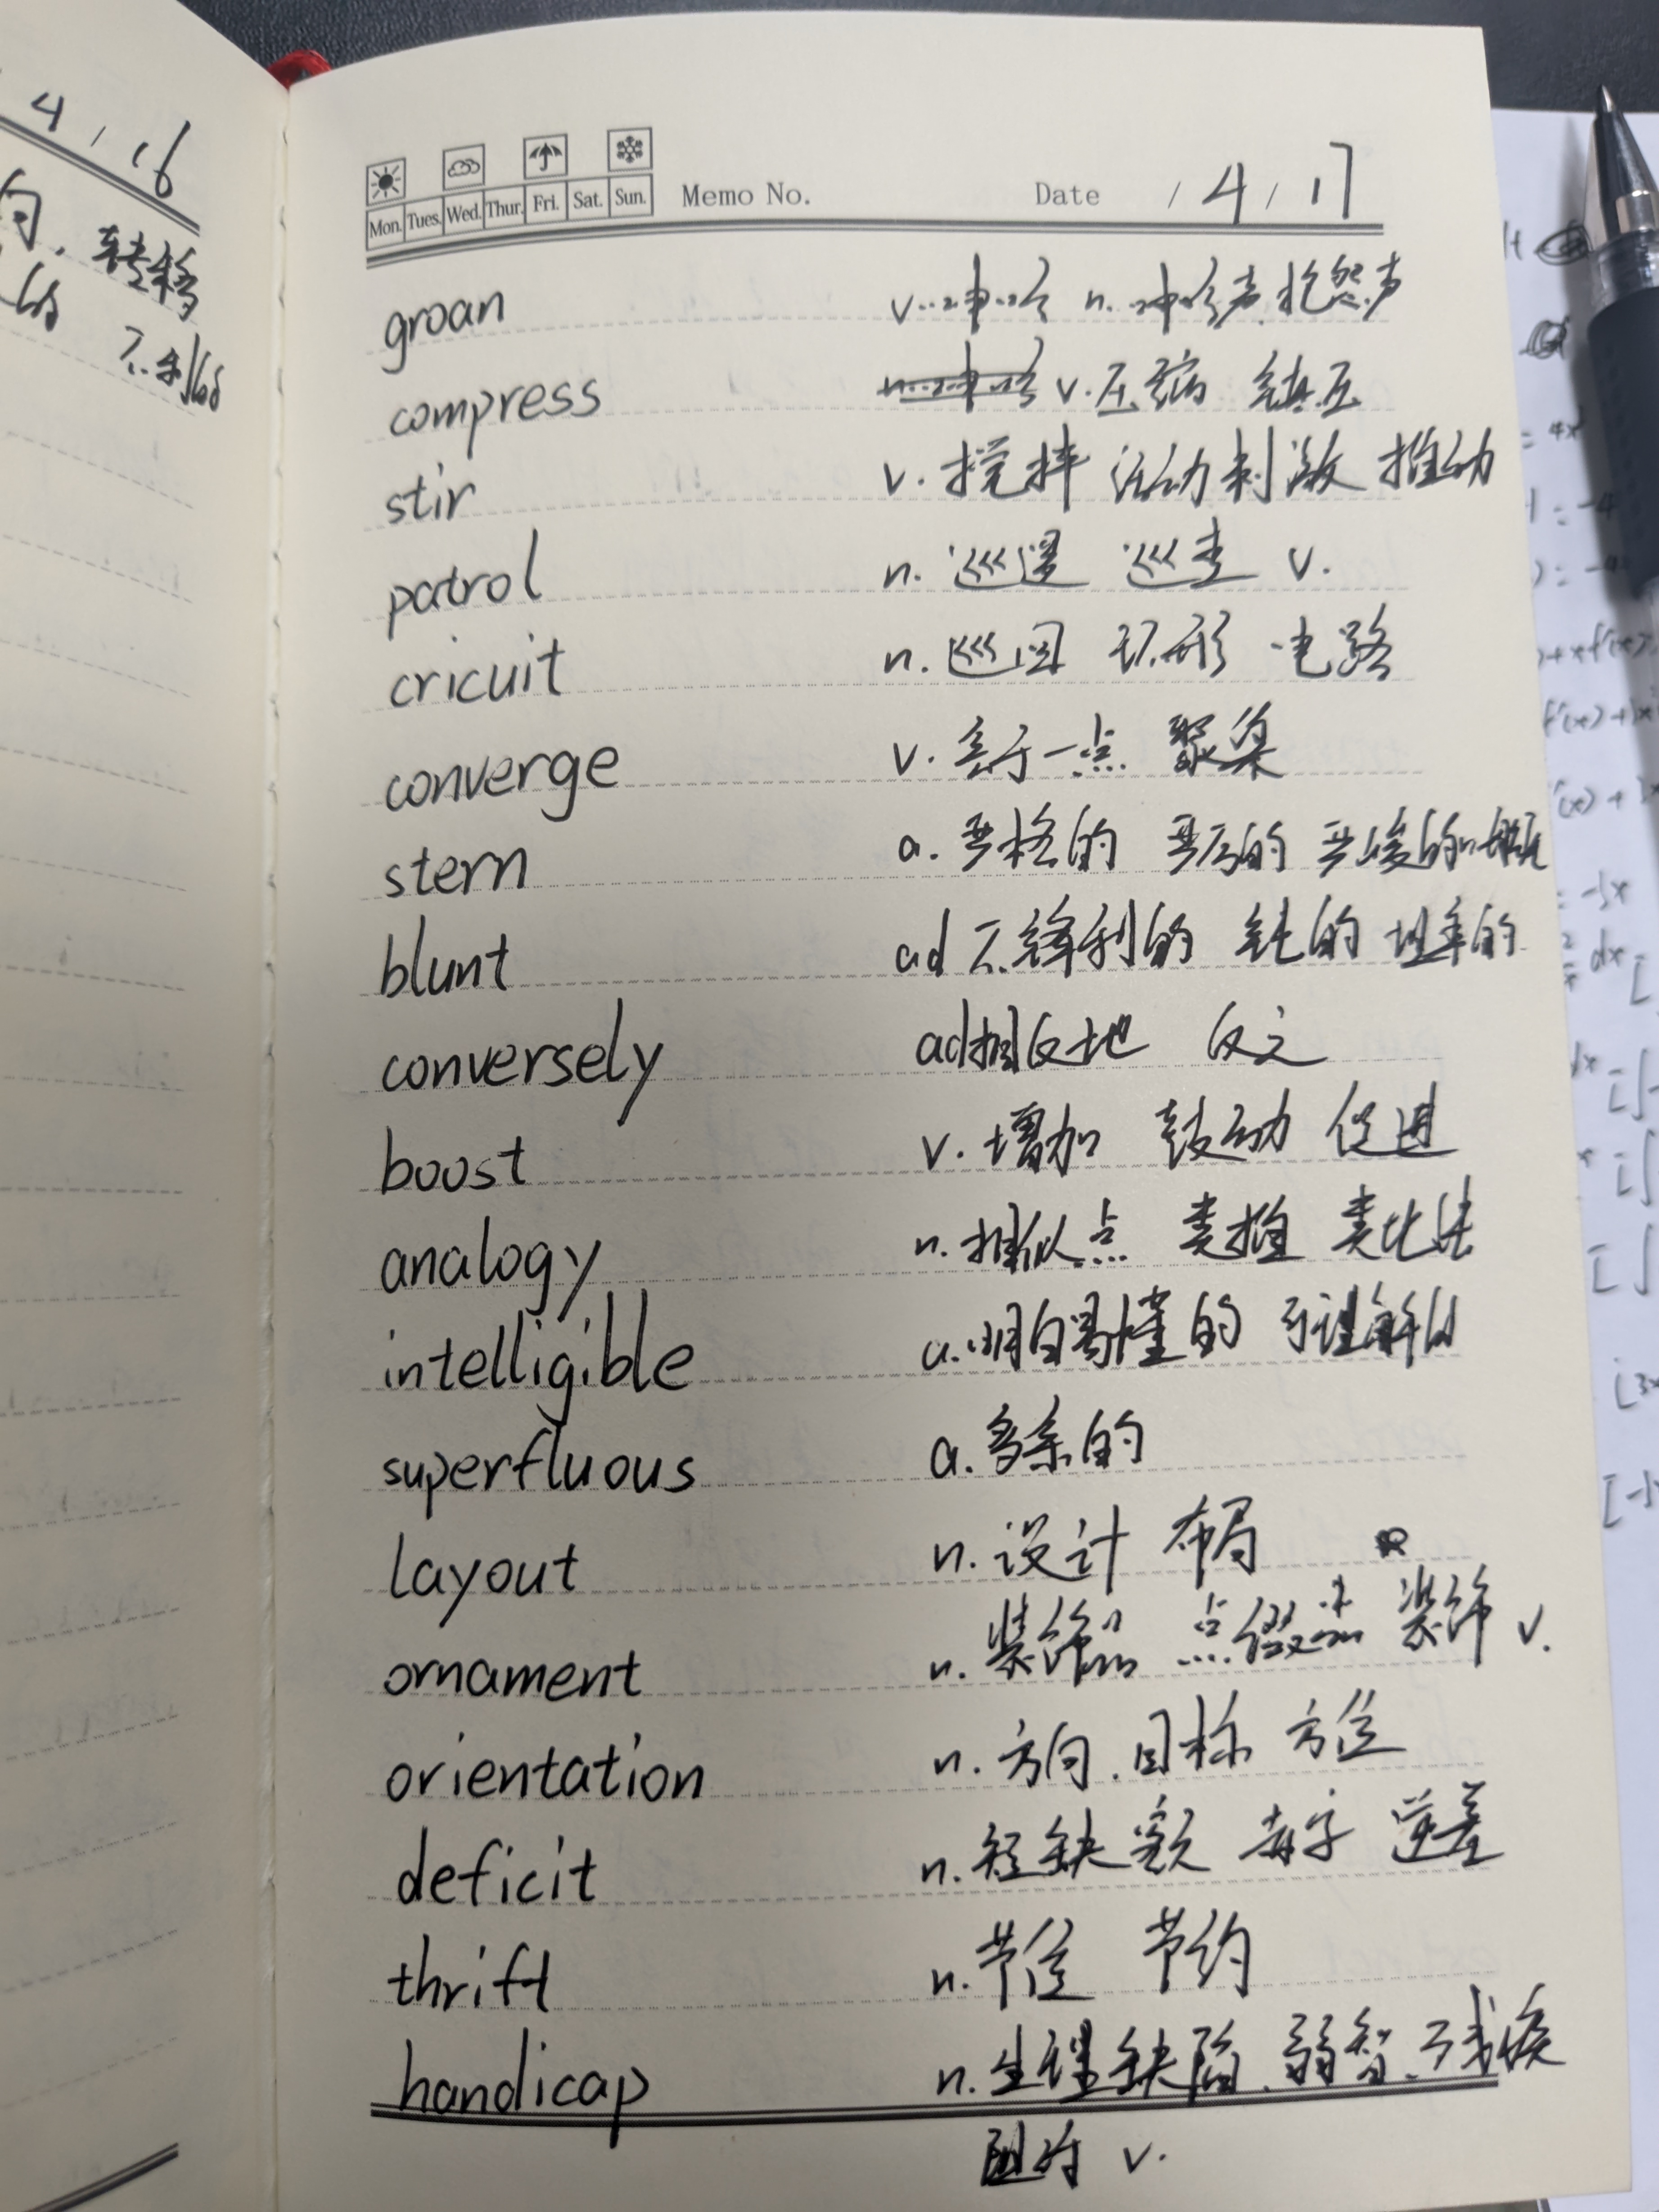 4 / 16
转移
不利的
Mon. Tues. Wed. Thur. Fri. Sat. Sun. Memo No. Date / 4 / 17
groan v.呻吟 n.呻吟声 抱怨声
compress v.压缩 镇压
stir v.搅拌 活动 刺激 推动
patrol n.巡逻 巡走 v.
cricuit n.巡回 环形 电路
converge v.会于一点 聚集
stern a.严格的 严厉的 严峻的 n.船尾
blunt ad 不锋利的 钝的 坦率的
conversely ad相反地 反之
boost v.增加 鼓动 促进
analogy n.相似点 类推 类比法
intelligible a.明白易懂的 可理解的
superfluous a.多余的
layout n.设计 布局
ornament n.装饰品 点缀品 装饰 v.
orientation n.方向.目标 方位
deficit n.短缺额 赤字 逆差
thrift n.节俭 节约
handicap n.生理缺陷.弱智.残疾
v.